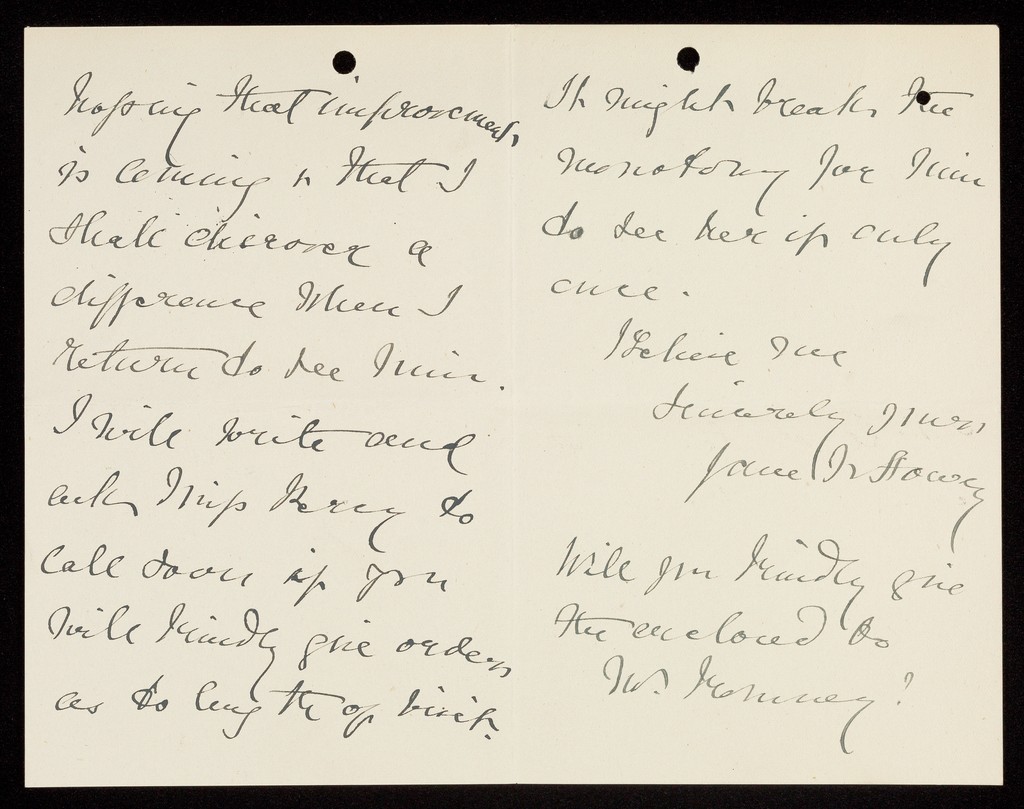 hoping that improvement
is coming & that I
shall discover a
difference when I
return to see him.
I will write and
ask Miss Percy to
call soon if you
will kindly give orders
as to length of visit.
It might break the
monotony for him
to see her if only
once.
Believe me
Sincerely yours
Jane
Will you kindly give
the enclosed to
Mr. Romney?